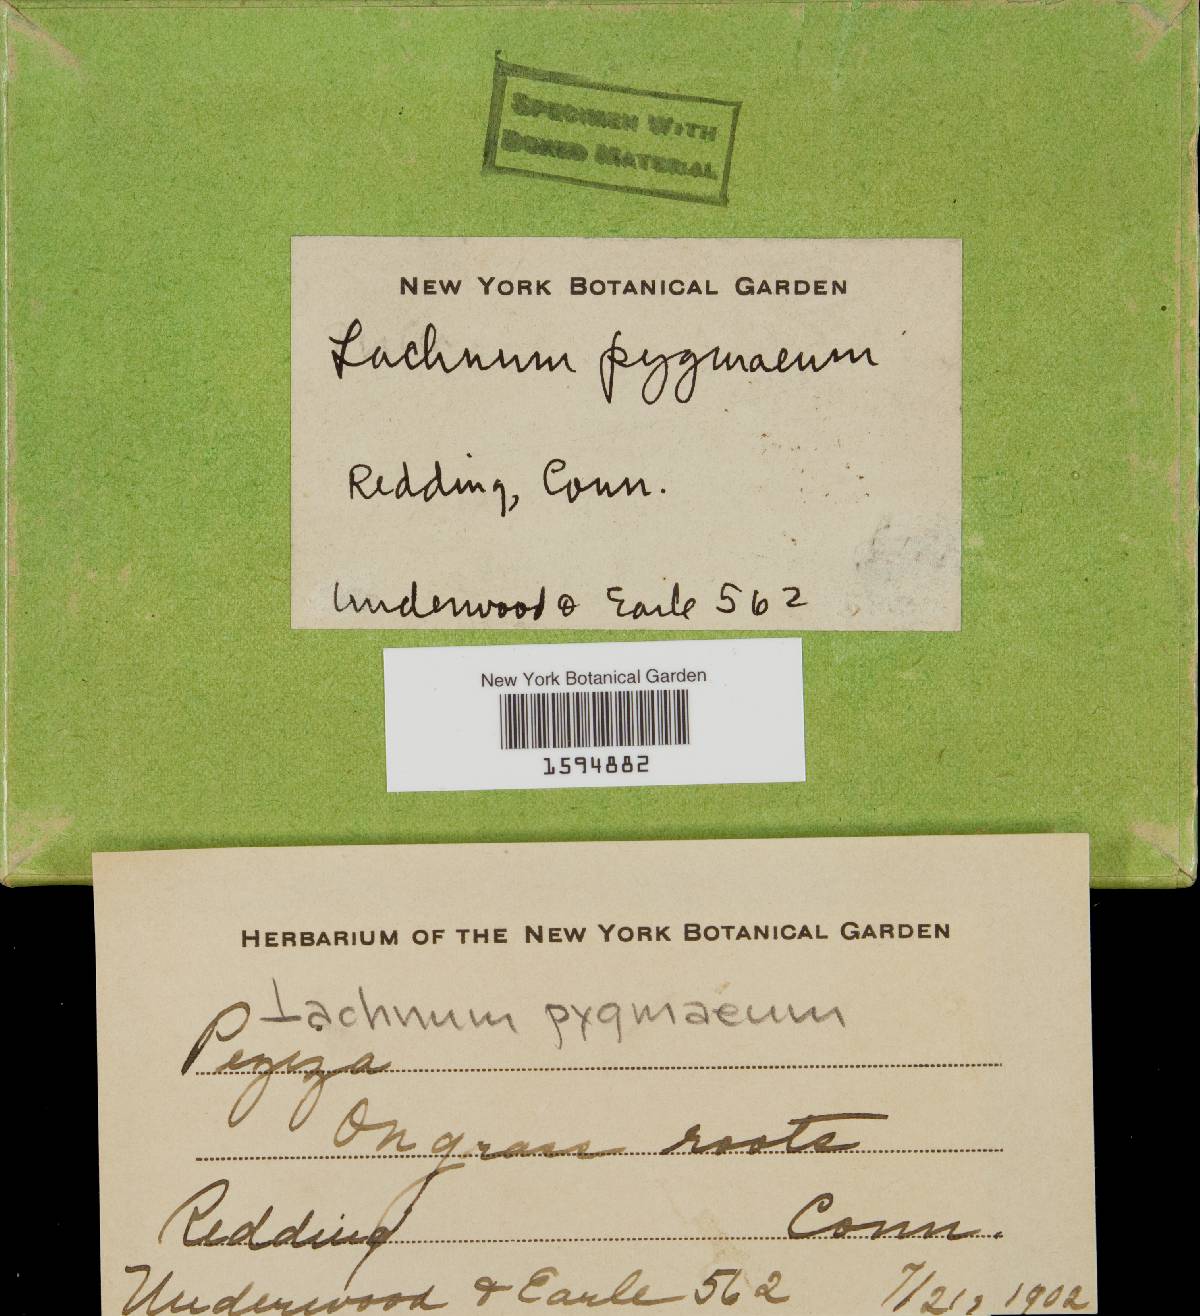 SPECIMEN WITH
BOXED MATERIAL
NEW YORK BOTANICAL GARDEN
Lachnum pygmaeum
Redding, Conn.
Underwood & Earle 562
New York Botanical Garden
1594882
HERBARIUM OF THE NEW YORK BOTANICAL GARDEN
Lachnum pygmaeum
Peziza
On grass roots
Redding Conn.
Underwood & Earle 562 7/21, 1902